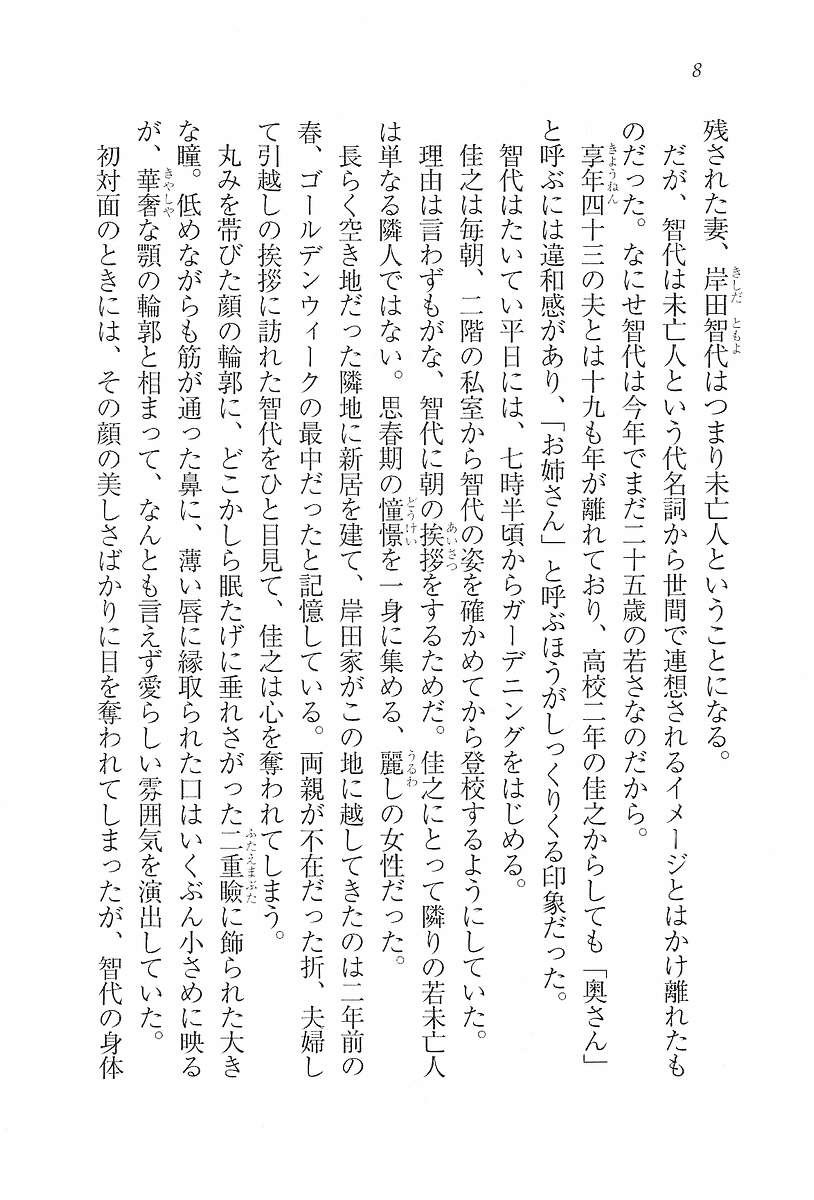 8
残された妻、岸田智代はつまり未亡人ということになる。
だが、智代は未亡人という代名詞から世間で連想されるイメージとはかけ離れたも
のだった。なにせ智代は今年でまだ二十五歳の若さなのだから。
享年四十三の夫とは十九も年が離れており、高校二年の佳之からしても「奥さん」
と呼ぶには違和感があり、「お姉さん」と呼ぶほうがしっくりくる印象だった。
智代はたいてい平日には、七時半頃からガーデニングをはじめる。
佳之は毎朝、二階の私室から智代の姿を確かめてから登校するようにしていた。
理由は言わずもがな、智代に朝の挨拶をするためだ。佳之にとって隣りの若未亡人
は単なる隣人ではない。思春期の憧憬を一身に集める、麗しの女性だった。
長らく空き地だった隣地に新居を建て、岸田家がこの地に越してきたのは二年前の
春、ゴールデンウィークの最中だったと記憶している。両親が不在だった折、夫婦し
て引越しの挨拶に訪れた智代をひと目見て、佳之は心を奪われてしまう。
丸みを帯びた顔の輪郭に、どこかしら眠たげに垂れさがった二重瞼に飾られた大き
な瞳。低めながらも筋が通った鼻に、薄い唇に縁取られた口はいくぶん小さめに映る
が、華奢な顎の輪郭と相まって、なんとも言えず愛らしい雰囲気を演出していた。
初対面のときには、その顔の美しさばかりに目を奪われてしまったが、智代の身体